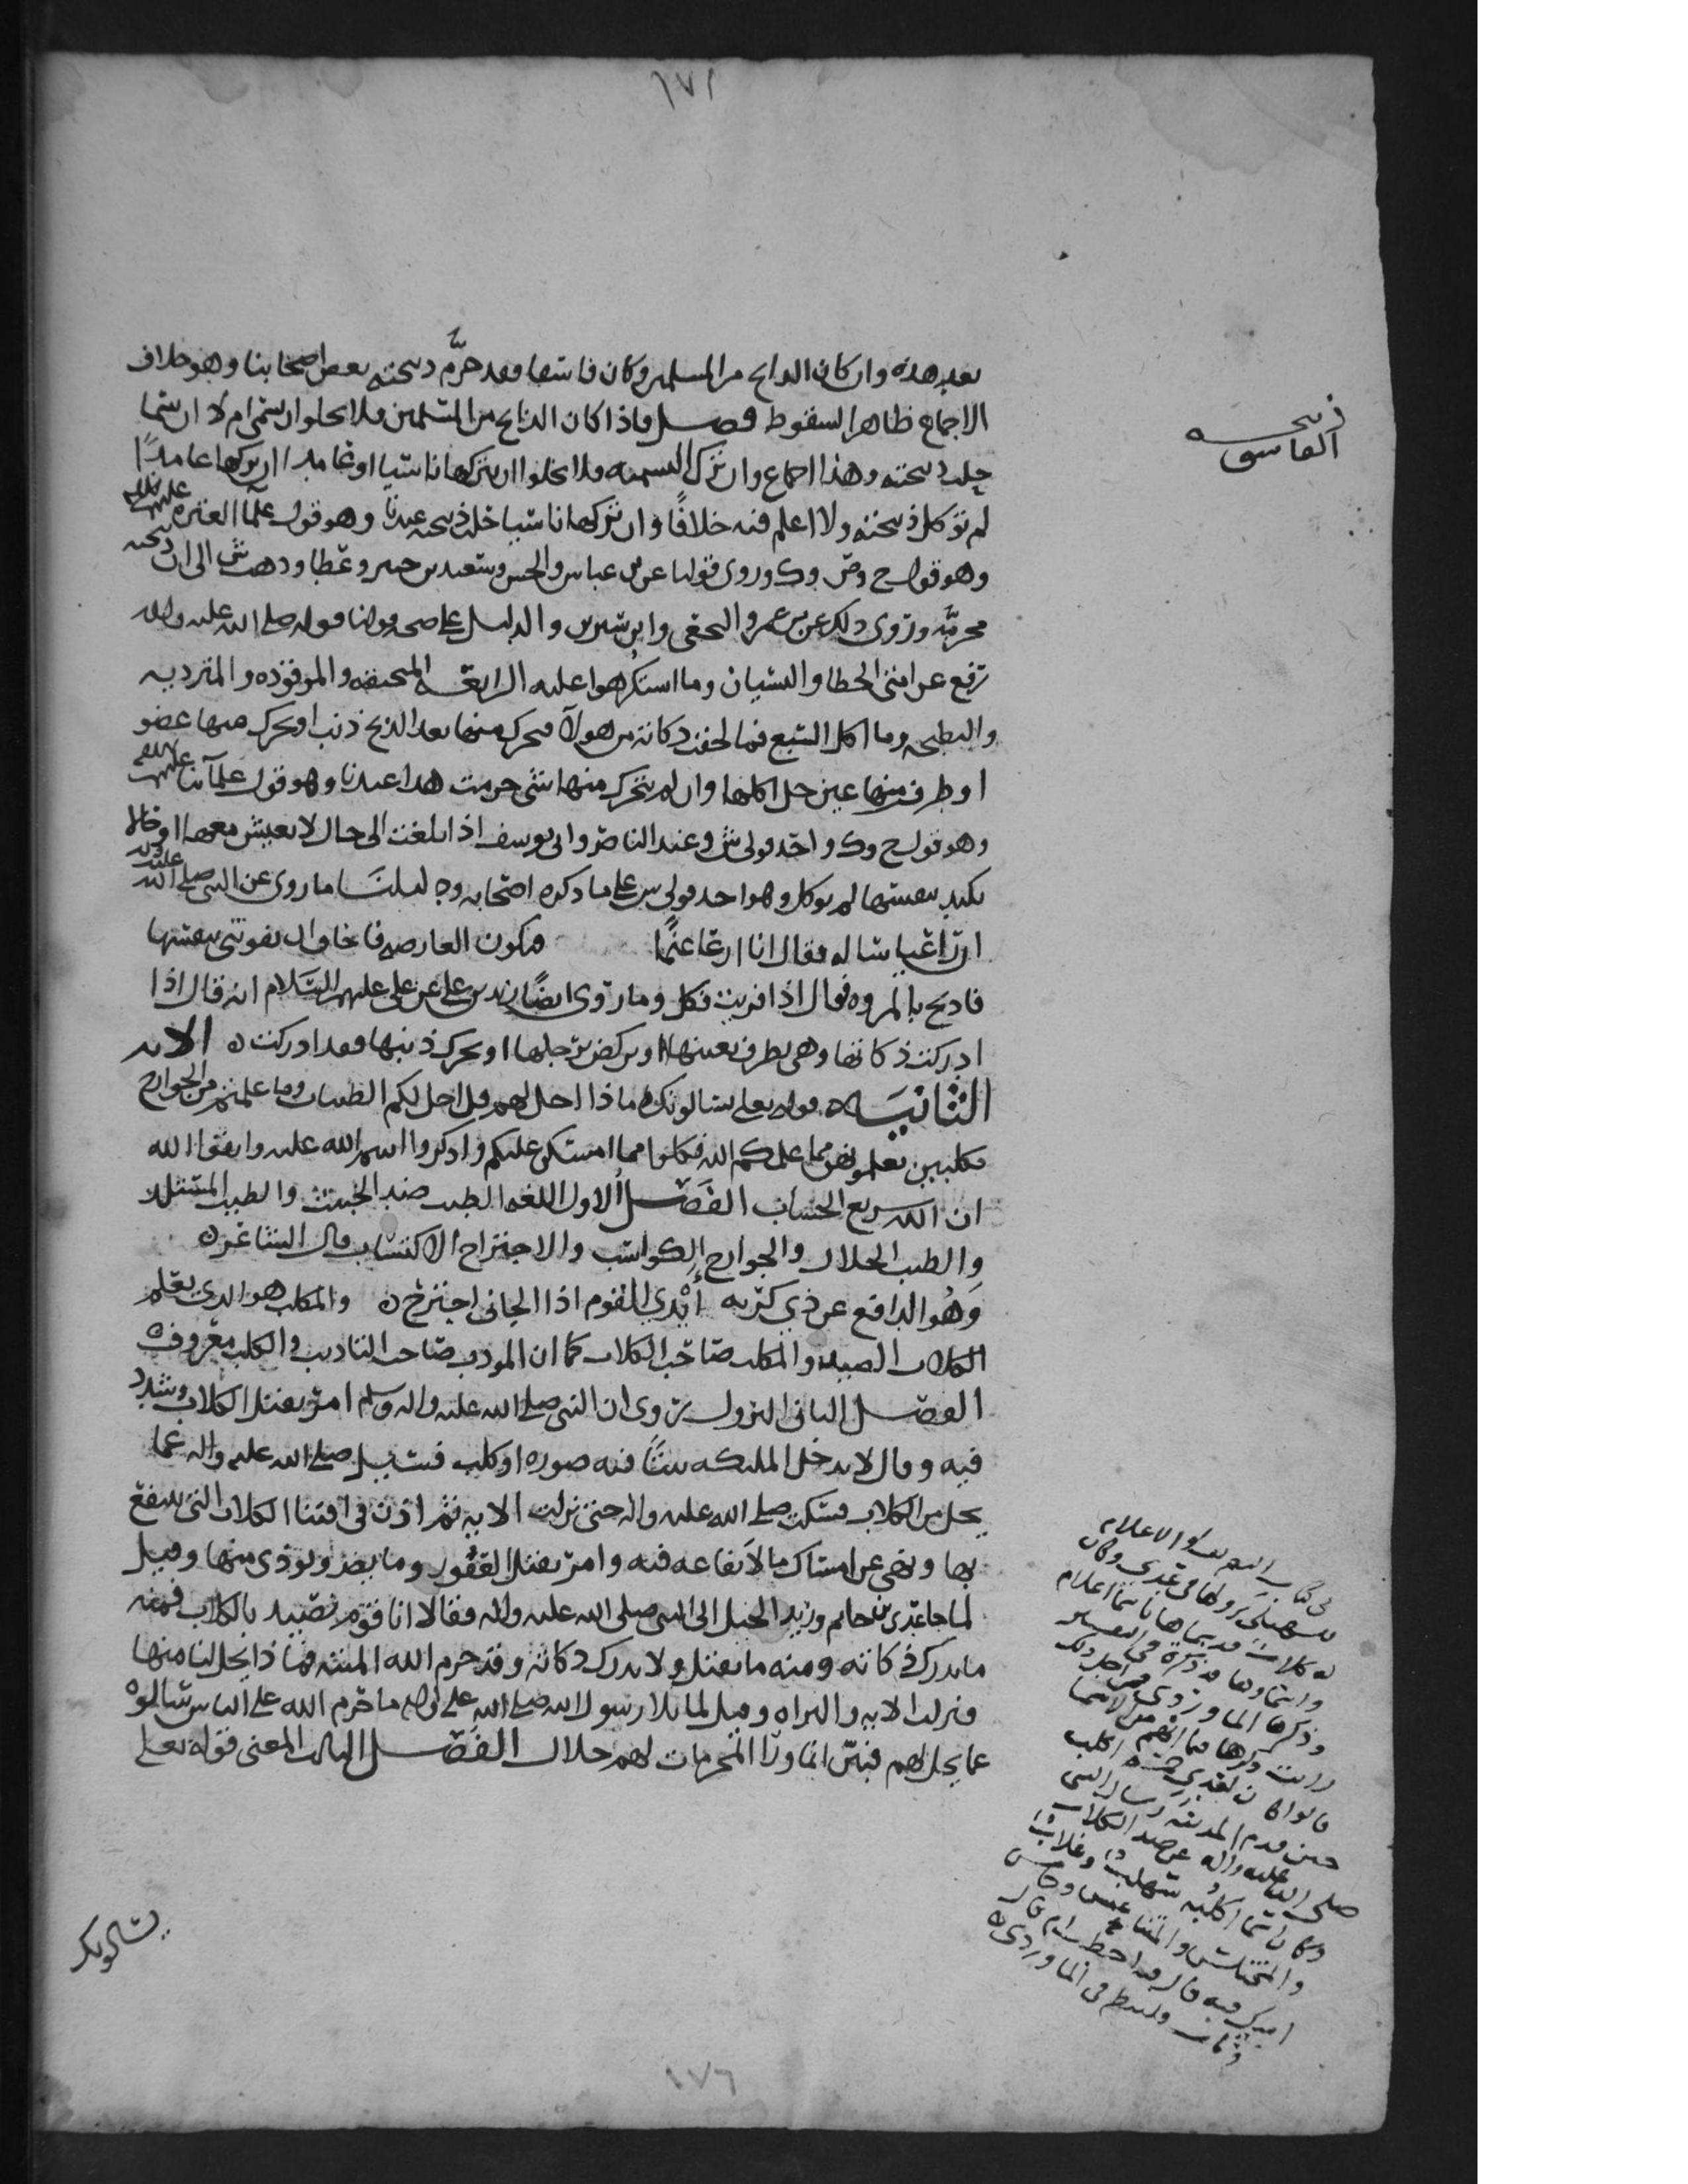 ١٧١
بعد هذه وان كان الذابح من المسلمين وكان فاسقا فقد حرَّم ذبيحته بعض اصحابنا وهو خلاف
الاجماع ظاهر السقوط فصل فاذا كان الذابح من المسلمين فلا يخلوا ان سمى ام لا ان سما
حلت ذبيحته وهذا اجماع وان ترك التسمية فلا يخلوا ان يتركها ناسيا او عامدا ان تركها عامدًا
لم توكل ذبيحته ولا اعلم فيه خلافًا وان تركها ناسيا حلت ذبيحته عندنا وهو قول علما العتره عليهم السلم
وهو قول ح وص وك وروى قولنا عن بن عباس والحسن وسعيد بن جبير وعطا وذهب ش الى ان ذبيحته
محرمة وروى ذلك عن بن عمر والنخعي وابن سيرين والدليل على صحه قولنا قوله صلى الله عليه واله
رفع عن امتي الخطا والنسيان وما استكرهوا عليه الرابعه المنخنقه والموقوذه والمترديه
والنطيحه وما اكل السبع فما لحقت ذكاته من هولآ فتحرك منها بعد الذبح ذنب او تحرك منها عضو
او طرف منها عين حل اكلها وان لم يتحرك منها شي حرمت هذا عندنا وهو قول علمآئنا عليهم السلم
وهو قول ح وك واحد قولى ش وعند الناصر وابي يوسف اذا بلغت الى حال لا يعيش معها او
لم يوكل وهو احد قولى ش على ما ذكره اصحابه ودليلنَا ما روى عن النبي صلى الله عليه واله
ان راعيا ساله فقال انا ارعا غنمًا فتكون العارضه فاخاف ان تفوتني بنفسها
فاذبح بالمروه فقال اذا فريت فكل وما روى ايضًا زيد بن علي عن علي عليهم السلام انه قال اذا
ادركت ذكاتها وهي تطرف بعينها او تركض برجلها او تحرك ذنبها فقد ادركت ٥ الايه
الثانيَـه قوله تعلى يسالونك ماذا احل لهم قل احل لكم الطيبات وما علمتم من الجوارح
مكلبين تعلمونهن مما علمكم الله فكلوا مما امسكن عليكم واذكروا اسم الله عليه واتقوا الله
ان الله سريع الحساب الفَصْل الاول اللغه الطيب ضد الخبيث والطيب المستلذ
والطيب الحلال والجوارح الكواسب والاجتراح الاكتساب قال الشاعر ٥
وَهُو الدافع عن ذي كربه أيْدي القوم اذا الجانى اجترح ٥ والمكلب هو الذي يعلم
الكلاب الصيد والمكلب صاحب الكلاب كما ان المودب صاحب التاديب والكلب معروف
الفصل الثاني النزول روى ان النبي صلى الله عليه واله وسلم امر بقتل الكلاب وشدد
فيه وقال لا يدخل الملئكه بيتًا فيه صوره او كلب فسئل صلى الله عليه واله عما
يحل من الكلاب فسكت صلى الله عليه واله حتى نزلت الايه ثم اذن في اقتنا الكلاب التي ينتفع
بها ونهى عن امساك ما لا نفاعه فيه وامر بقتل العقور وما يضر ويوذى منها وقيل
لما جا عدي بن حاتم وزيد الخيل الى النبي صلى الله عليه واله فقالا انا قوم نصيد بالكلاب فمنه
ما يدرك ذكاته ومنه ما يقتل ولا يدرك ذكاته وقد حرم الله الميته فماذا يحل لنا منها
فنزلت الايه والبراه وقيل لما تلا رسول الله صلى الله عليه واله ما حرم الله على الناس سالوه
عما يحل لهم فبين ان ما ورا المحرمات لهم حلال الفَصْل الثالث المعنى قوله تعلى
يسالونك
ذبيحه
الفاسق
في كتاب التعريف والاعلام
للسهيلي نزولها في عدي وكان
له كلاب قد سماها باسما اعلام
حين قدم المدينه وسال النبي
صلى الله عليه واله عن صيد الكلاب
وكان اسما اكلبه سلهب وغلاب
والمختلس والمتناعس
١٧٦